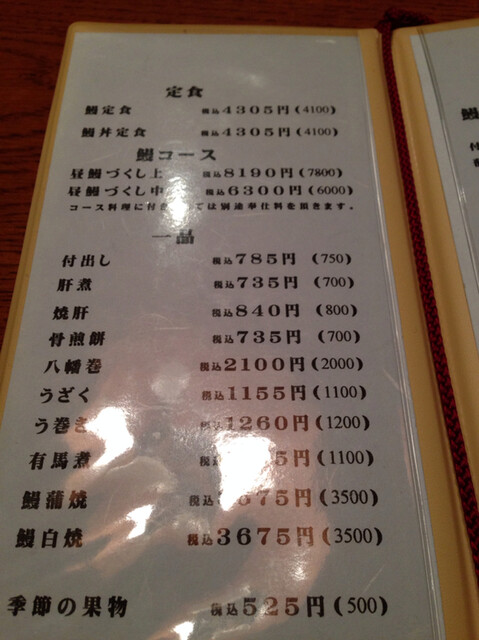 定食
鰻定食 税込4305円(4100)
鰻丼定食 税込4305円(4100)
鰻コース
昼鰻づくし上 税込8190円(7800)
昼鰻づくし中 税込6300円(6000)
コース料理に付きましては別途奉仕料を頂きます。
一品
付出し 税込785円(750)
肝煮 税込735円(700)
焼肝 税込840円(800)
骨煎餅 税込735円(700)
八幡巻 税込2100円(2000)
うざく 税込1155円(1100)
う巻き 税込1260円(1200)
有馬煮 税込 円(1100)
鰻蒲焼 税込3675円(3500)
鰻白焼 税込3675円(3500)
季節の果物 税込525円(500)
鰻
付